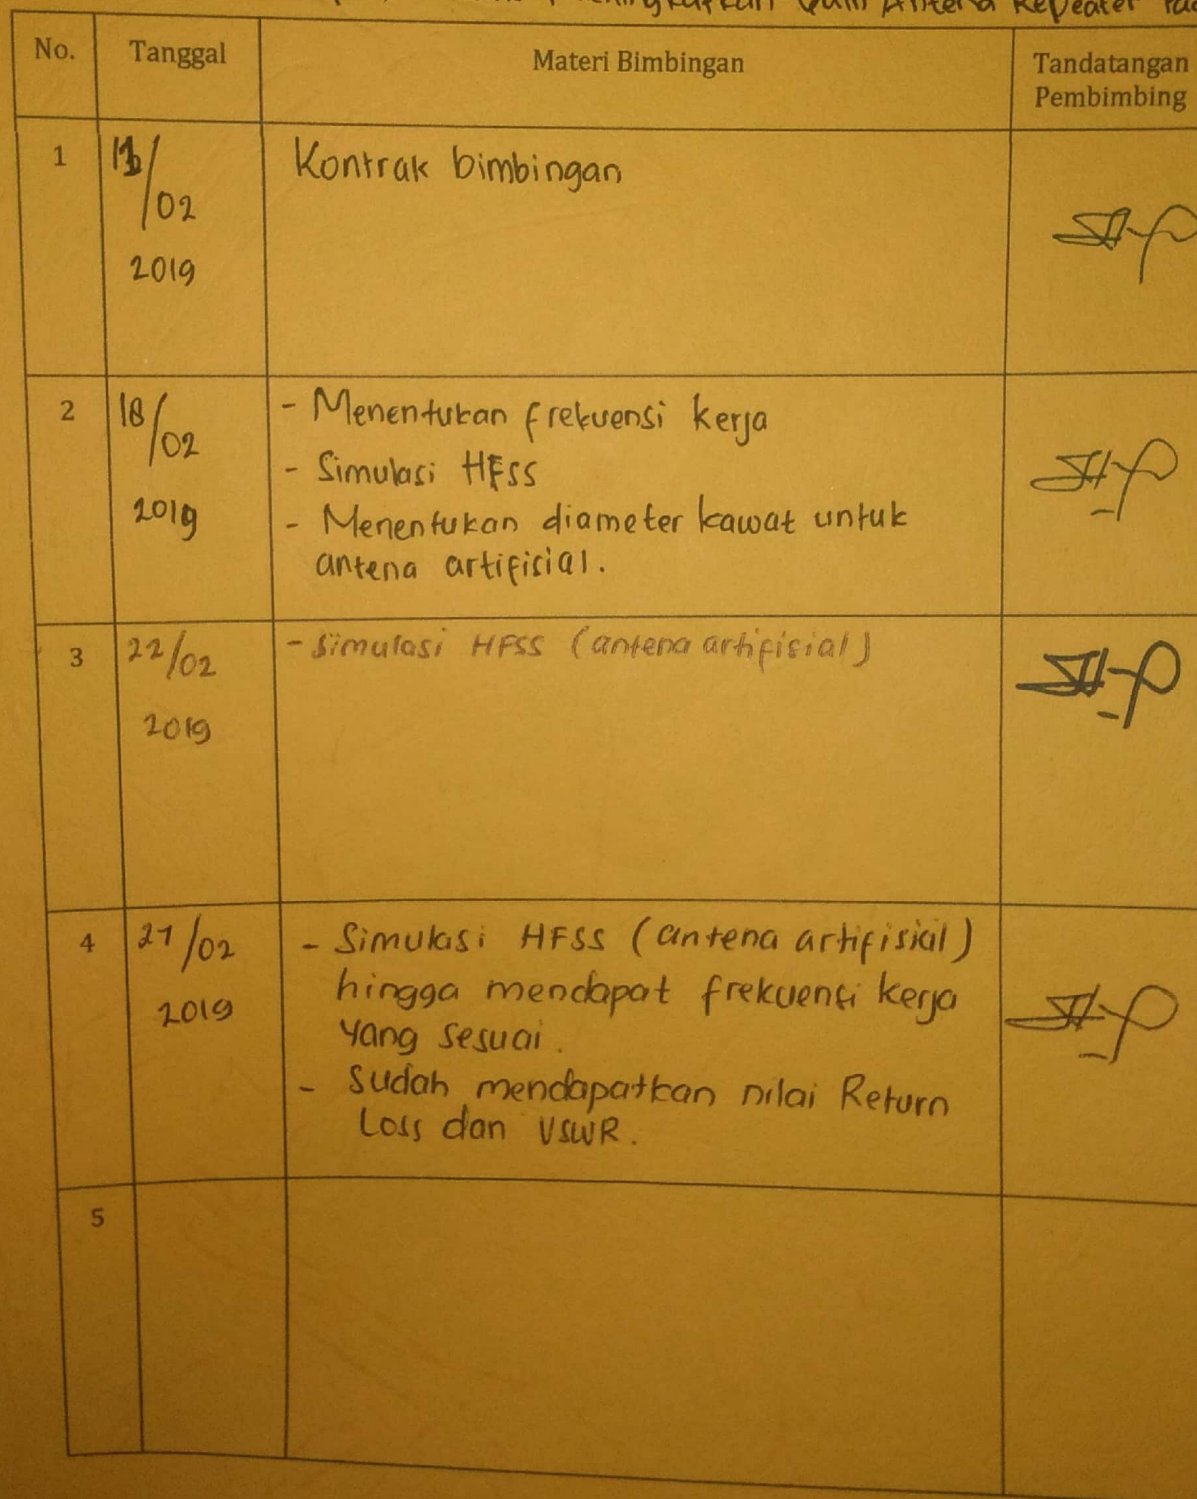 Antena Repeater
No. Tanggal Materi Bimbingan Tandatangan
Pembimbing
1 Kontrak bimbingan
/02
2019
2 18/02 - Menentukan frekuensi kerja
- Simulasi HFSS
2019 - Menentukan diameter kawat untuk
antena artifisial.
3 22/02 - Simulasi HFSS (antena artifisial)
2019
4 27/02 - Simulasi HFSS (antena artifisial)
2019 hingga mendapat frekuensi kerja
yang sesuai.
- Sudah mendapatkan nilai Return
Loss dan VSWR.
5